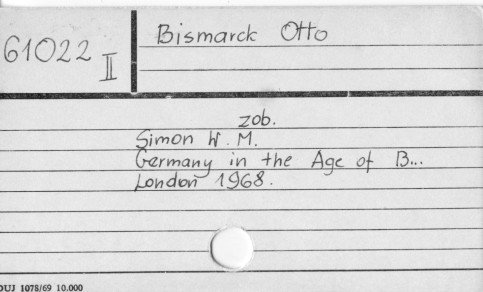 61022 II
Bismarck Otto
zob.
Simon W. M.
Germany in the Age of B...
London 1968.
DUJ 1078/69 10.000